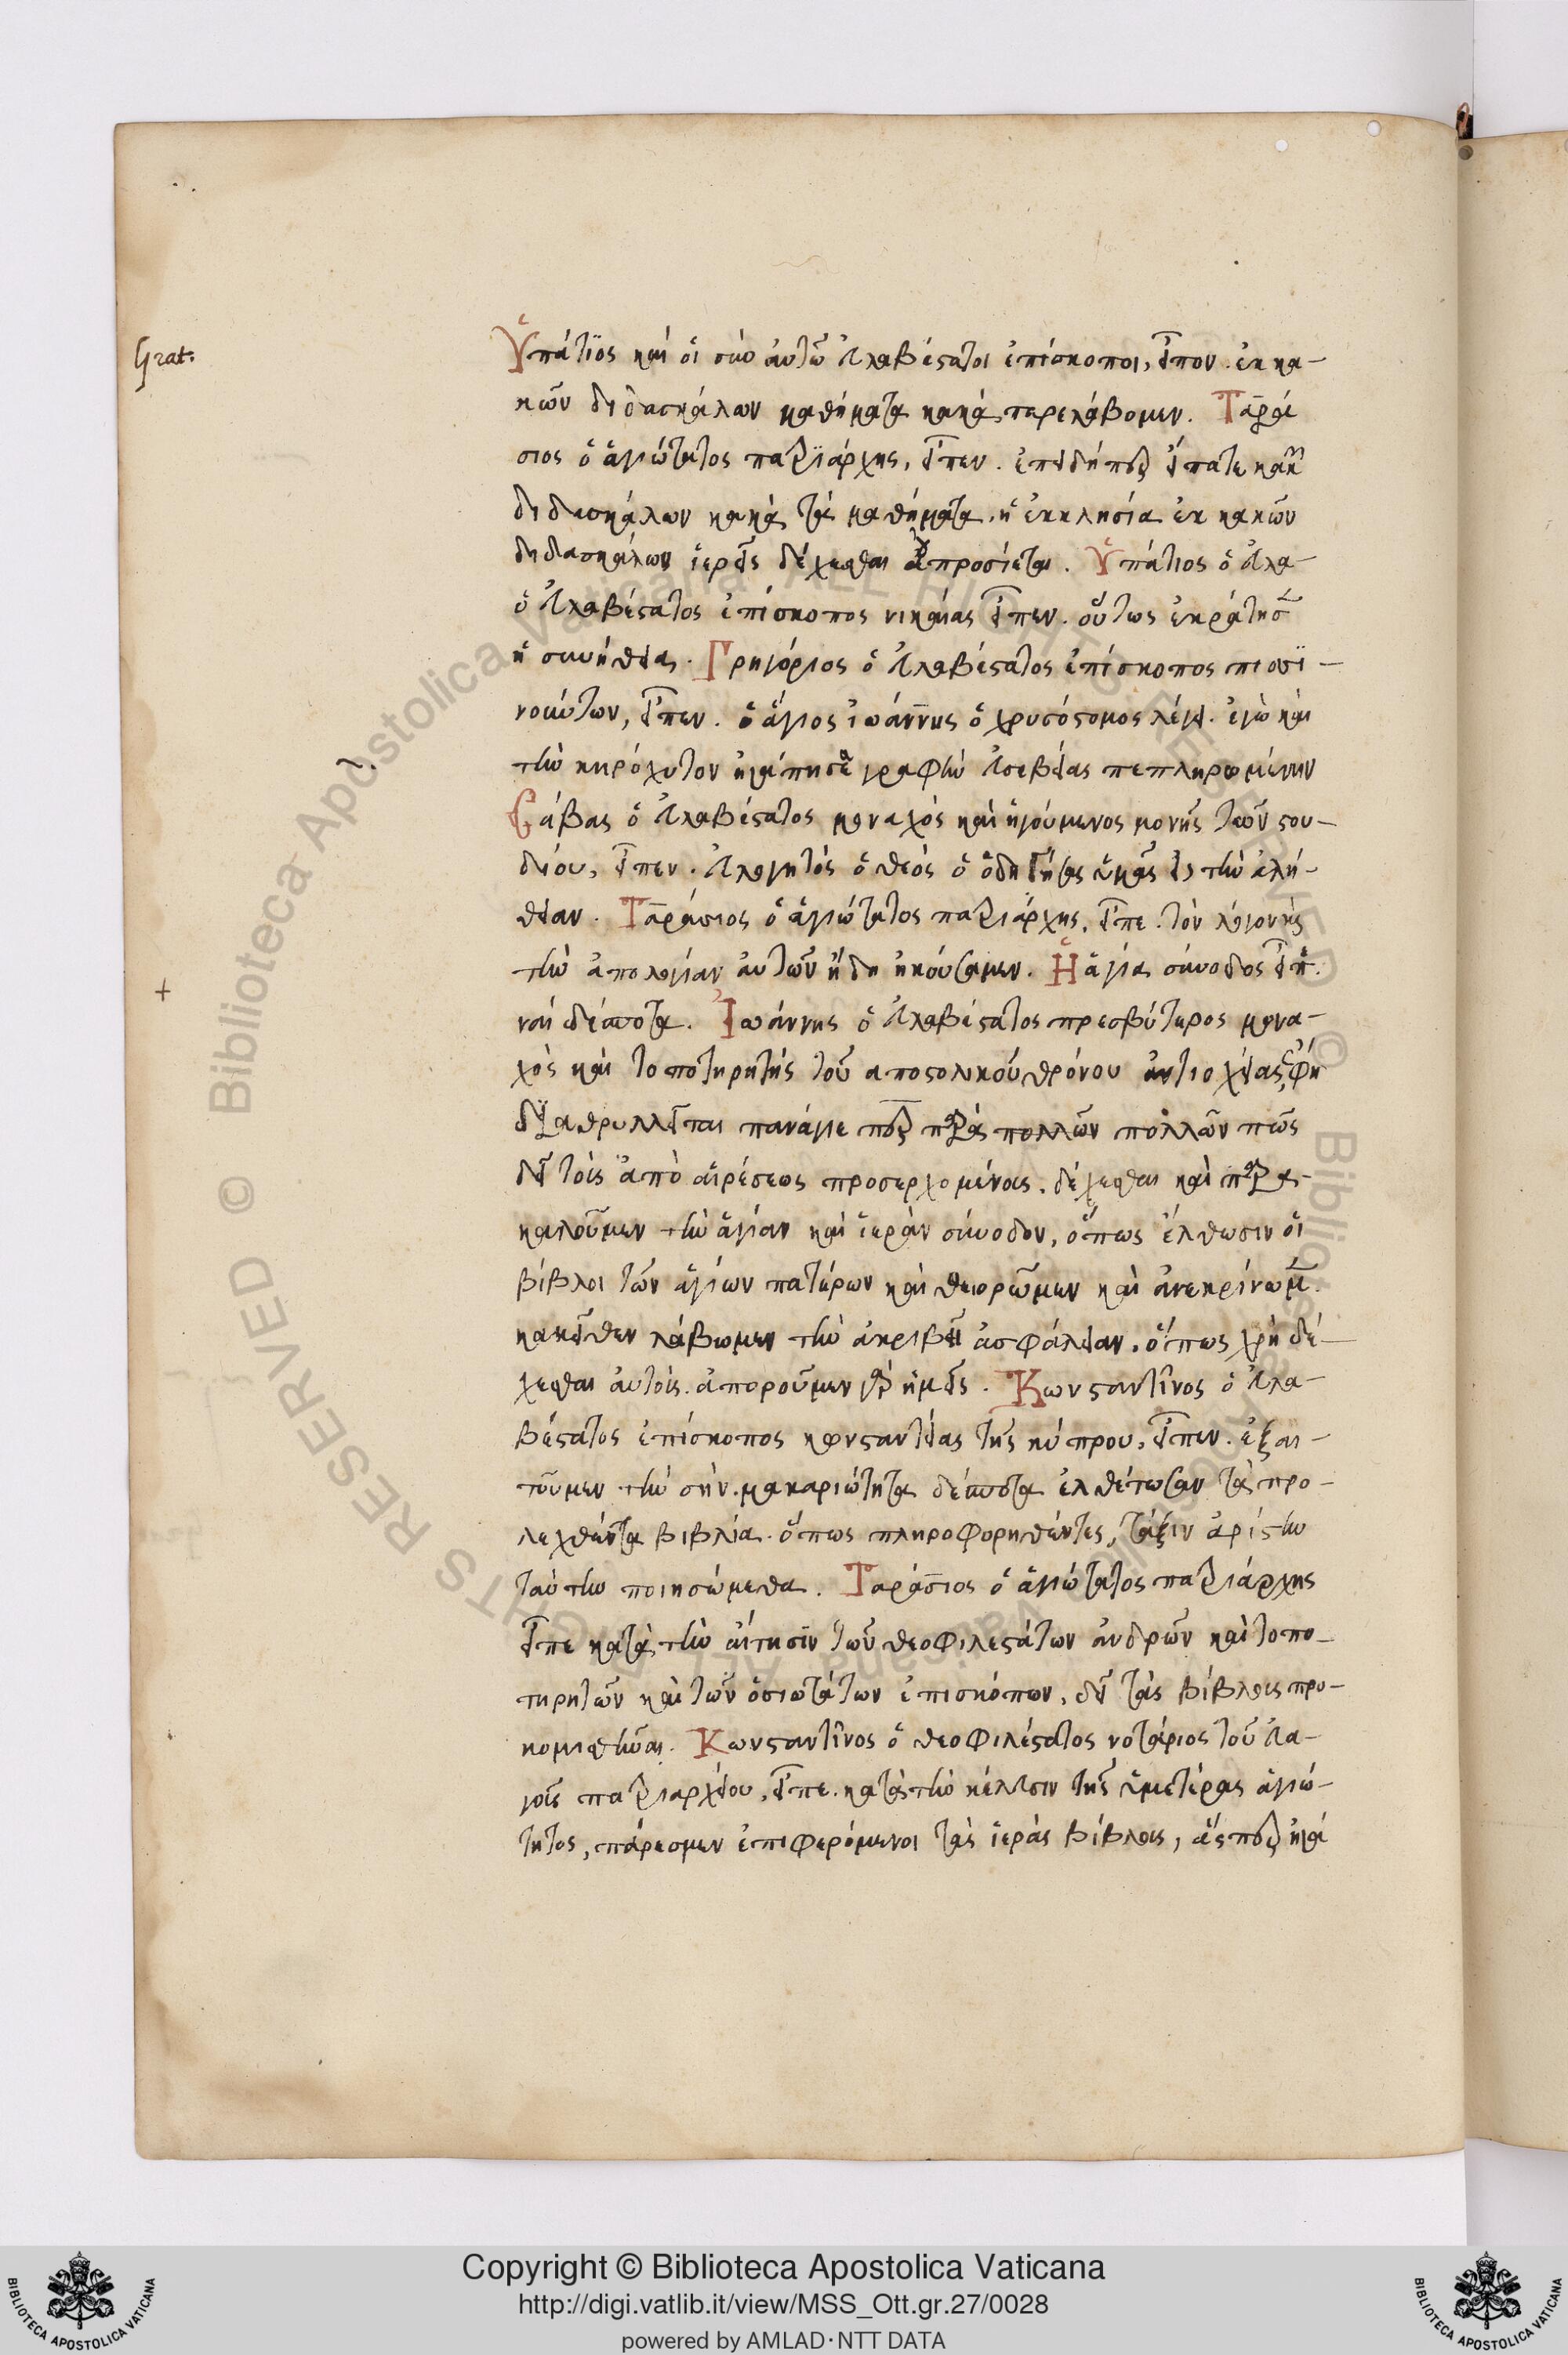 Grat.
Ὑπάτιος καὶ οἱ σὺν αὐτῶ εὐλαβέστατοι ἐπίσκοποι, εἶπον. ἐκ κα-
κῶν διδασκάλων μαθήματα κακὰ παρελάβομεν. Ταρά
σιος ὁ ἁγιώτατος πατριάρχης, εἶπεν. ἐπειδήπερ εἴπατε κακῶν
διδασκάλων κακὰ τὰ μαθήματα. ἡ ἐκκλησία ἐκ κακῶν
διδασκάλων ἱερεῖς δέχεσθαι προσίεται. Ὑπάτιος ὁ εὐλα-
ὁ εὐλαβέστατος ἐπίσκοπος νικαίας εἶπεν. οὕτως ἐκράτησεν
ἡ συνήθεια. Γρηγόριος ὁ εὐλαβέστατος ἐπίσκοπος πισσι-
νούντων, εἶπεν. ὁ ἅγιος ἰωάννης ὁ χρυσόστομος λέγει. ἐγὼ καὶ
τὴν κηρόχυτον ἠγάπησα γραφὴν εὐσεβείας πεπληρωμένην
Σάβας ὁ εὐλαβέστατος μοναχὸς καὶ ἡγούμενος μονῆς τῶν στου-
δίου, εἶπεν. εὐλογητὸς ὁ θεὸς ὁ ὁδηγήσας ὑμᾶς εἰς τὴν ἀλή-
θειαν. Ταράσιος ὁ ἁγιώτατος πατριάρχης, εἶπε. τὸν λόγον εἰς
τὴν ἀπολογίαν αὐτῶν ἤδη ἠκούσαμεν. Ἡ ἁγία σύνοδος εἶπεν.
ναὶ δέσποτα. Ἰωάννης ὁ εὐλαβέστατος πρεσβύτερος μονα-
χὸς καὶ τοποτηρητὴς τοῦ αποστολικοῦ θρόνου ἀντιοχείας, ἔφη
διαθρυλλεῖται πανάγιε πάτερ παρὰ πολλῶν πολλῶν πῶς
δεῖ τοῖς ἀπὸ αἱρέσεως προσερχομένοις. δέχεσθαι καὶ παρα-
καλοῦμεν τὴν ἁγίαν καὶ ἱερὰν σύνοδον, ὅπως ἔλθωσιν οἱ
βίβλοι τῶν ἁγίων πατέρων καὶ θεωρῶμεν καὶ ἀνακρίνωμεν.
κακεῖθεν λάβωμεν τὴν ἀκριβῆ ἀσφάλειαν. ὅπως χρὴ δέ-
χεσθαι αὐτοῖς. ἀποροῦμεν γὰρ ἡμεῖς. Κωνσταντῖνος ὁ εὐλα-
βέστατος ἐπίσκοπος κωνσταντείας τῆς κύπρου, εἶπεν. ἐξαι-
τοῦμεν τὴν σὴν μακαριότητα δέσποτα ἐλθέτωσαν τὰ προ-
λεχθέντα βιβλία. ὅπως πληροφορηθέντες, τάξιν ἀρίστην
ταύτην ποιησώμεθα. Ταράσιος ὁ ἁγιώτατος πατριάρχης
εἶπε κατὰ τὴν αἴτησιν τῶν θεοφιλεστάτων ἀνδρῶν καὶ τοπο-
τηρητῶν καὶ τῶν ὁσιωτάτων ἐπισκόπων, δεῖ τὰς βίβλους προ-
κομισθῆναι. Κωνσταντῖνος ὁ θεοφιλέστατος νοτάριος τοῦ εὐα-
γοῦς πατριαρχείου, εἶπε. κατὰ τὴν κέλευσιν τῆς ὑμετέρας ἁγιώ-
τητος, πάρεσμεν ἐπιφερόμενοι τὰς ἱερὰς βίβλους, ἅσπερ ἠγά
Copyright © Biblioteca Apostolica Vaticana
http://digi.vatlib.it/view/MSS_Ott.gr.27/0028
powered by AMLAD·NTT DATA